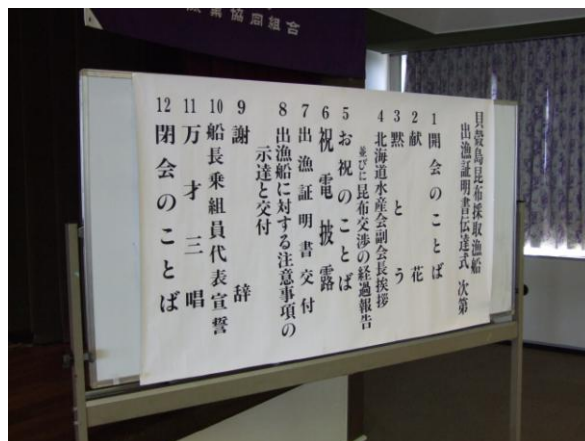 業協同組合
貝殻島昆布採取漁船
出漁証明書伝達式 次第
1 開会のことば
2 献花
3 黙とう
4 北海道水産会副会長挨拶
並びに昆布交渉の経過報告
5 お祝のことば
6 祝電披露
7 出漁証明書交付
8 出漁船に対する注意事項の
示達と交付
9 謝辞
10 船長乗組員代表宣誓
11 万才三唱
12 閉会のことば